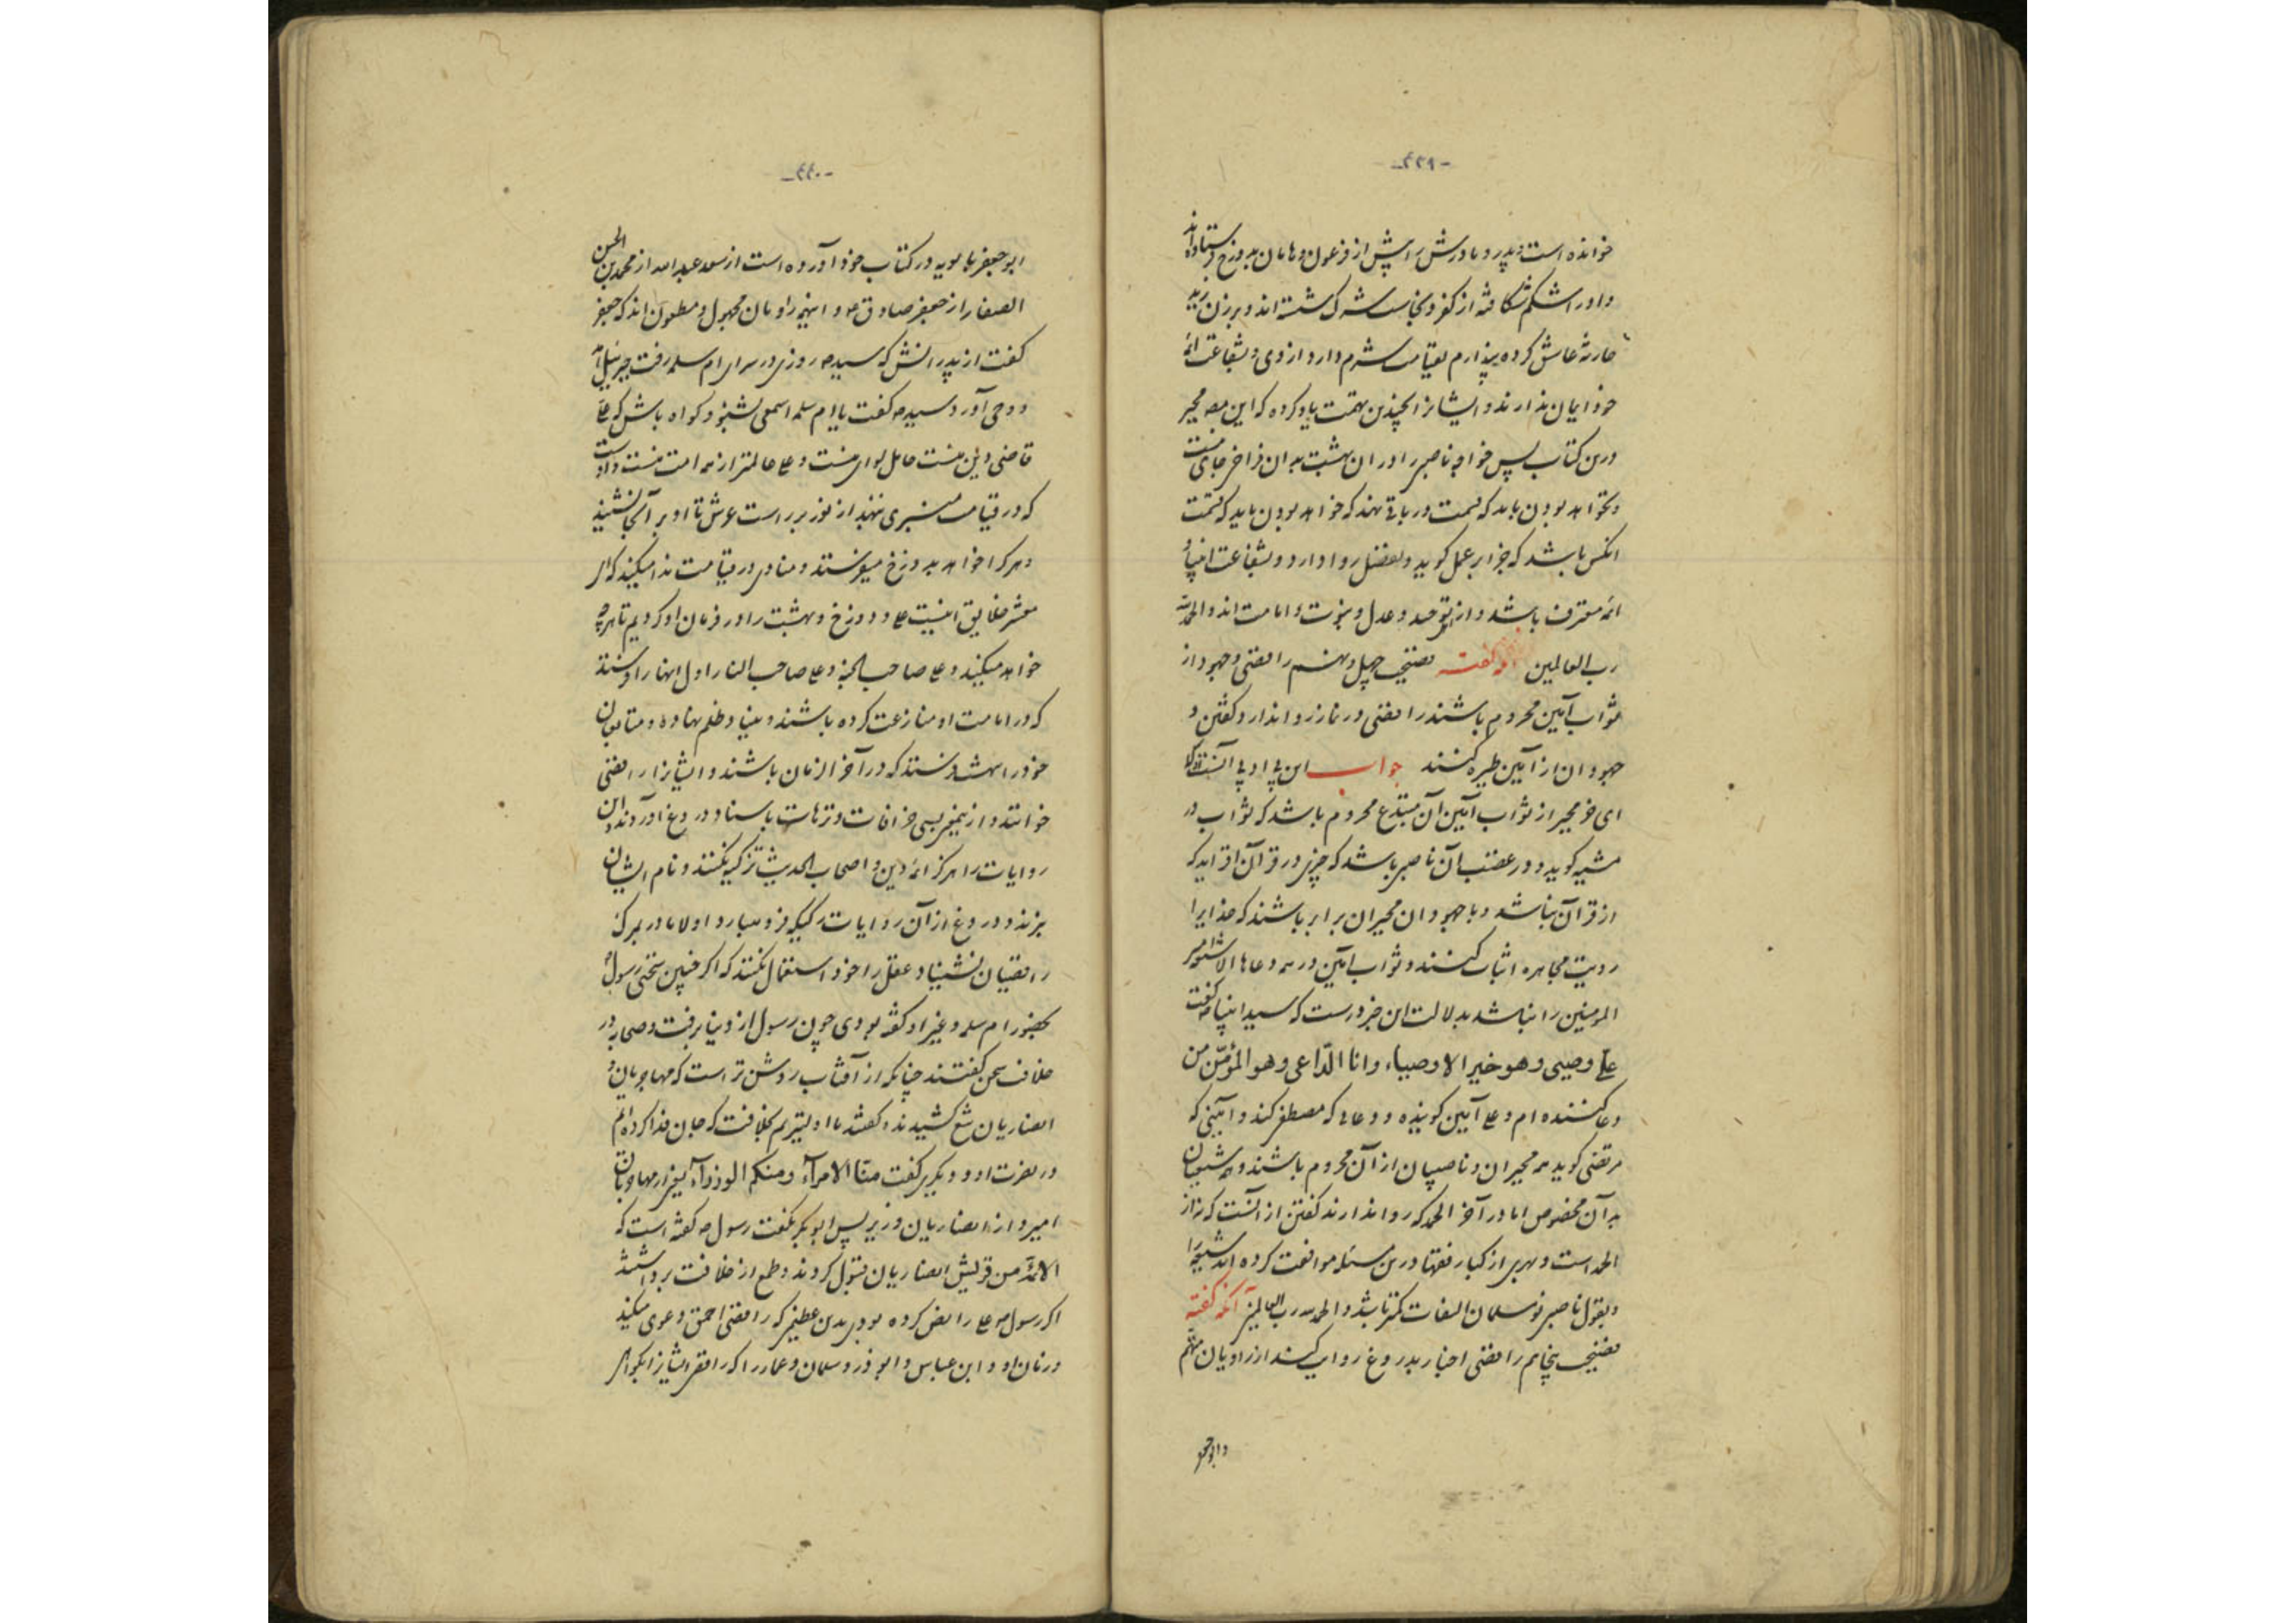 -٤٣٩-
خوانده است و پدر و مادرش را پیش از فرعون و هامان بدوزخ فرستاده اند
و او را شکم شکافته از کفر و نجاست شرک شسته اند و بر زن زید
حارثه عاشق کرده پندارم بقیامت شرم دارد از وی و بشفاعت ائمه
خود ایمان ندارند و ایشانرا بچندین تهمت یاد کرده که این مصنف مجبر
درین کتاب پس خواجه ناصبی را در آن بهشت بدان فراخی جای نیست
و نخواهد بودن باید که قسمت در باقی نهند که خواهد بودن باید که قسمت
آنکس باشد که جزا بر عمل گوید و تفضل روا دارد و بشفاعت انبیا و
ائمه معترف باشد و از توحید و عدل و نبوت و امامت اند والحمد لله
رب العالمین آنکه گفته فضیحت چهل و نهم رافضی و جهود از
ثواب آمین محروم باشند رافضی در نماز روا ندارد گفتن و
جهودان از آمین طیره کنند جواب این بی ادبی آنست که
ای خر مجبر از ثواب آمین آن مبتدع محروم باشد که ثواب در
مشیه گوید و در غضب آن ناصبی باشد که چیزی در قرآن افزاید که
از قرآن نباشد و با جهودان مجبران برابر باشند که خدایرا
رویت مجاهره اثبات کنند و ثواب آمین در همه دعاها الا شتم امیر
المومنین را نباشد بدلالت این خبر درست که سید انبیا گفت
علی وصیی وهو خیر الاوصیاء وانا الداعی وهو المؤمّن من
دعا کننده ام و علی آمین گوینده و دعائی که مصطفی کند و آمینی که
مرتضی گوید همه مجبران و ناصبیان از آن محروم باشند و همه شیعیان
بدان مخصوص اما در آخر الحمد که روا ندارند گفتن از آنست که نه از
الحمد است و بهری از کبار فقها درین مسئله موافقت کرده اند شیعه را
و بقول ناصبی نو مسلمان التفات کمتر باشد والحمد لله رب العالمین آنکه گفته
فضیحت پنجاهم رافضی اخبار بدروغ روایت کند از راویان متهم
و ابوجعفر
-٤٤٠-
ابوجعفر بابویه در کتاب خود آورده است از سعد عبدالله از محمد بن الحسن
الصفار از جعفر صادق ع و اینهمه راویان مجهول و مطعون اند که جعفر
گفت از پدرانش که سید ص روزی در سرای ام سلمه رفت جبرئیل آمد
و وحی آورد سید ص گفت یا ام سلمه اسمعی بشنو و گواه باش که علی
قاضی دین منست حامل لوای منست و علی عالمتر از همه امت منست و اوست
که در قیامت منبری نهند از نور بر راست عرش تا او بر آنجا نشیند
و هر کرا خواهد بدوزخ میفرستد و منادی در قیامت ندا میکند که ای
معشر خلایق اینست علی و دوزخ و بهشت را در فرمان او کردیم تا هر چه
خواهد میکند و علی صاحب الجنه و علی صاحب النار اول آنها را فرستد
که در امامت او منازعت کرده باشند و بنیاد ظلم نهاده و متابعان
خود را بهشت فرستد که در آخر الزمان باشند و ایشانرا رافضی
خوانند و ازین بسی خرافات و ترهات باسناد دروغ آورده اند و این
روایات را هرگز ائمه دین و اصحاب الحدیث تزکیه نکنند و نام ایشان
نبرند و دروغ از آن روایات رکیکه فرو میبارد اولا مادر بمرگ
رافضیان نشیناد عقل را خود استعمال نکنند که اگر چنین سخنی رسول ص
بحضور ام سلمه و غیر او گفته بودی چون رسول از دنیا برفت و صحابه در
خلافت سخن گفتند چنانکه از آفتاب روشن تر است که مهاجریان و
انصاریان تیغ کشیدند و گفتند ما اولیتریم بخلافت که جان فدا کرده ایم
در نصرت او و دیگری گفت منّا الامرآء ومنکم الوزرآء یعنی از مهاجریان
امیر و از انصاریان وزیر پس ابوبکر بگفت رسول ص گفته است که
الائمة من قریش انصاریان قبول کردند و طمع از خلافت برداشتند
اگر رسول ص علی را نص کرده بودی بدین عظیمی که رافضی احمق دعوی میکند
در زمان او و ابن عباس و ابوذر و سلمان و عمار را که رافضی ایشانرا بگواهی